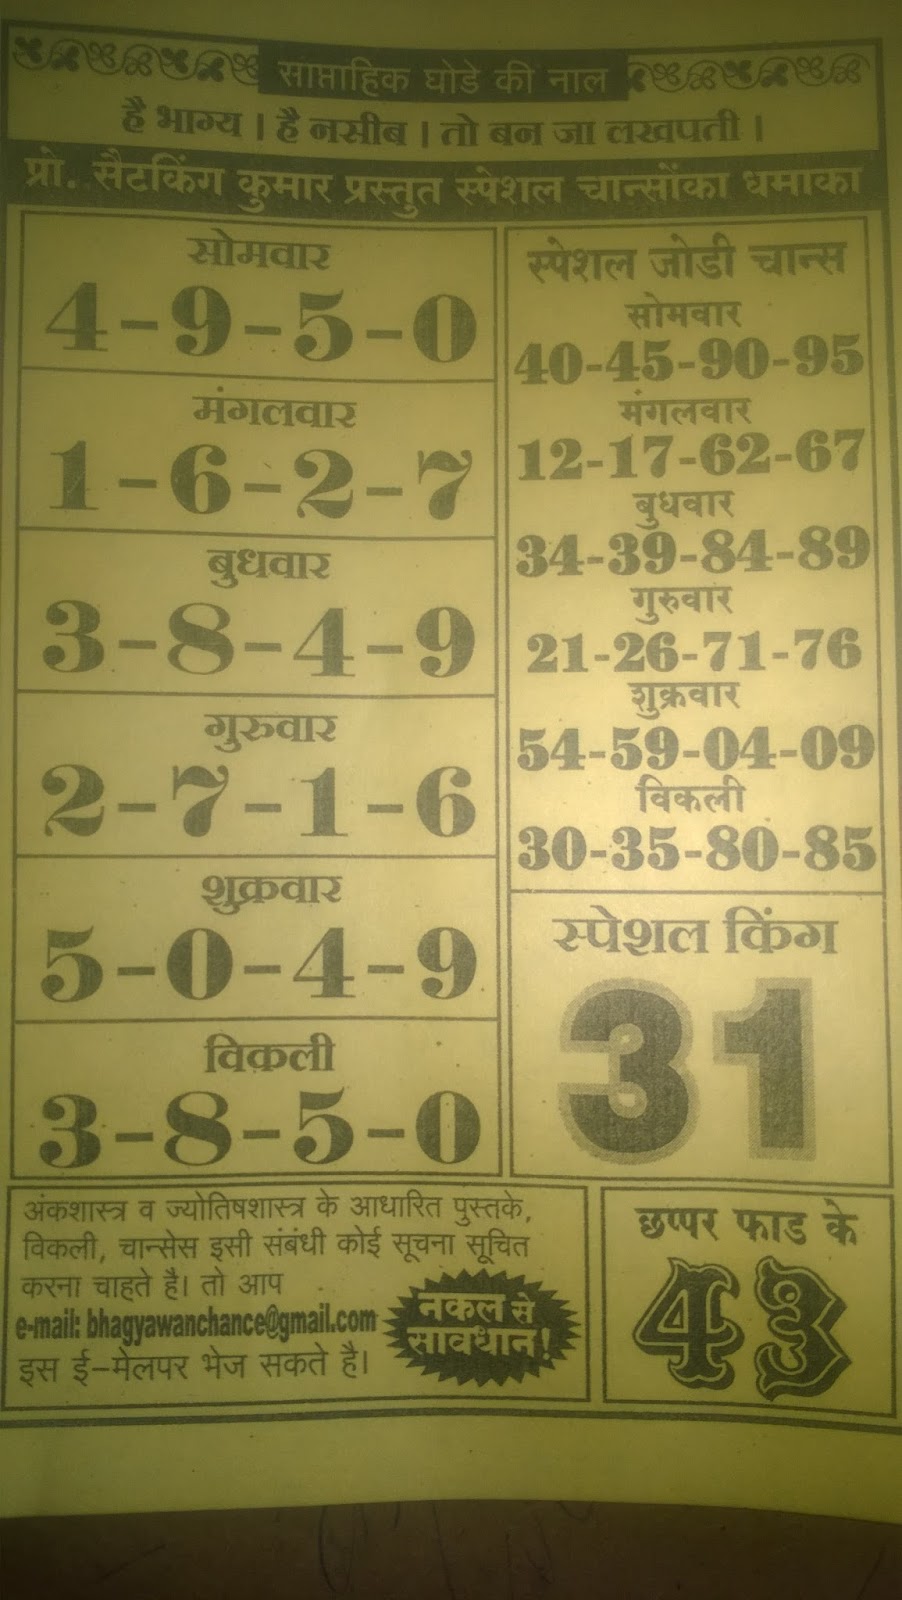 साप्ताहिक घोडे की नाल
है भाग्य । है नसीब । तो बन जा लखपती ।
प्रो. सैटकिंग कुमार प्रस्तुत स्पेशल चान्सोंका धमाका
सोमवार
4-9-5-0
मंगलवार
1-6-2-7
बुधवार
3-8-4-9
गुरुवार
2-7-1-6
शुक्रवार
5-0-4-9
विकली
3-8-5-0
स्पेशल जोडी चान्स
सोमवार
40-45-90-95
मंगलवार
12-17-62-67
बुधवार
34-39-84-89
गुरुवार
21-26-71-76
शुक्रवार
54-59-04-09
विकली
30-35-80-85
स्पेशल किंग
31
अंकशास्त्र व ज्योतिषशास्त्र के आधारित पुस्तके,
विकली, चान्सेस इसी संबंधी कोई सूचना सूचित
करना चाहते है। तो आप
e-mail: bhagyawanchance@gmail.com
इस ई-मेलपर भेज सकते है।
नकल से
सावधान!
छप्पर फाड के
43